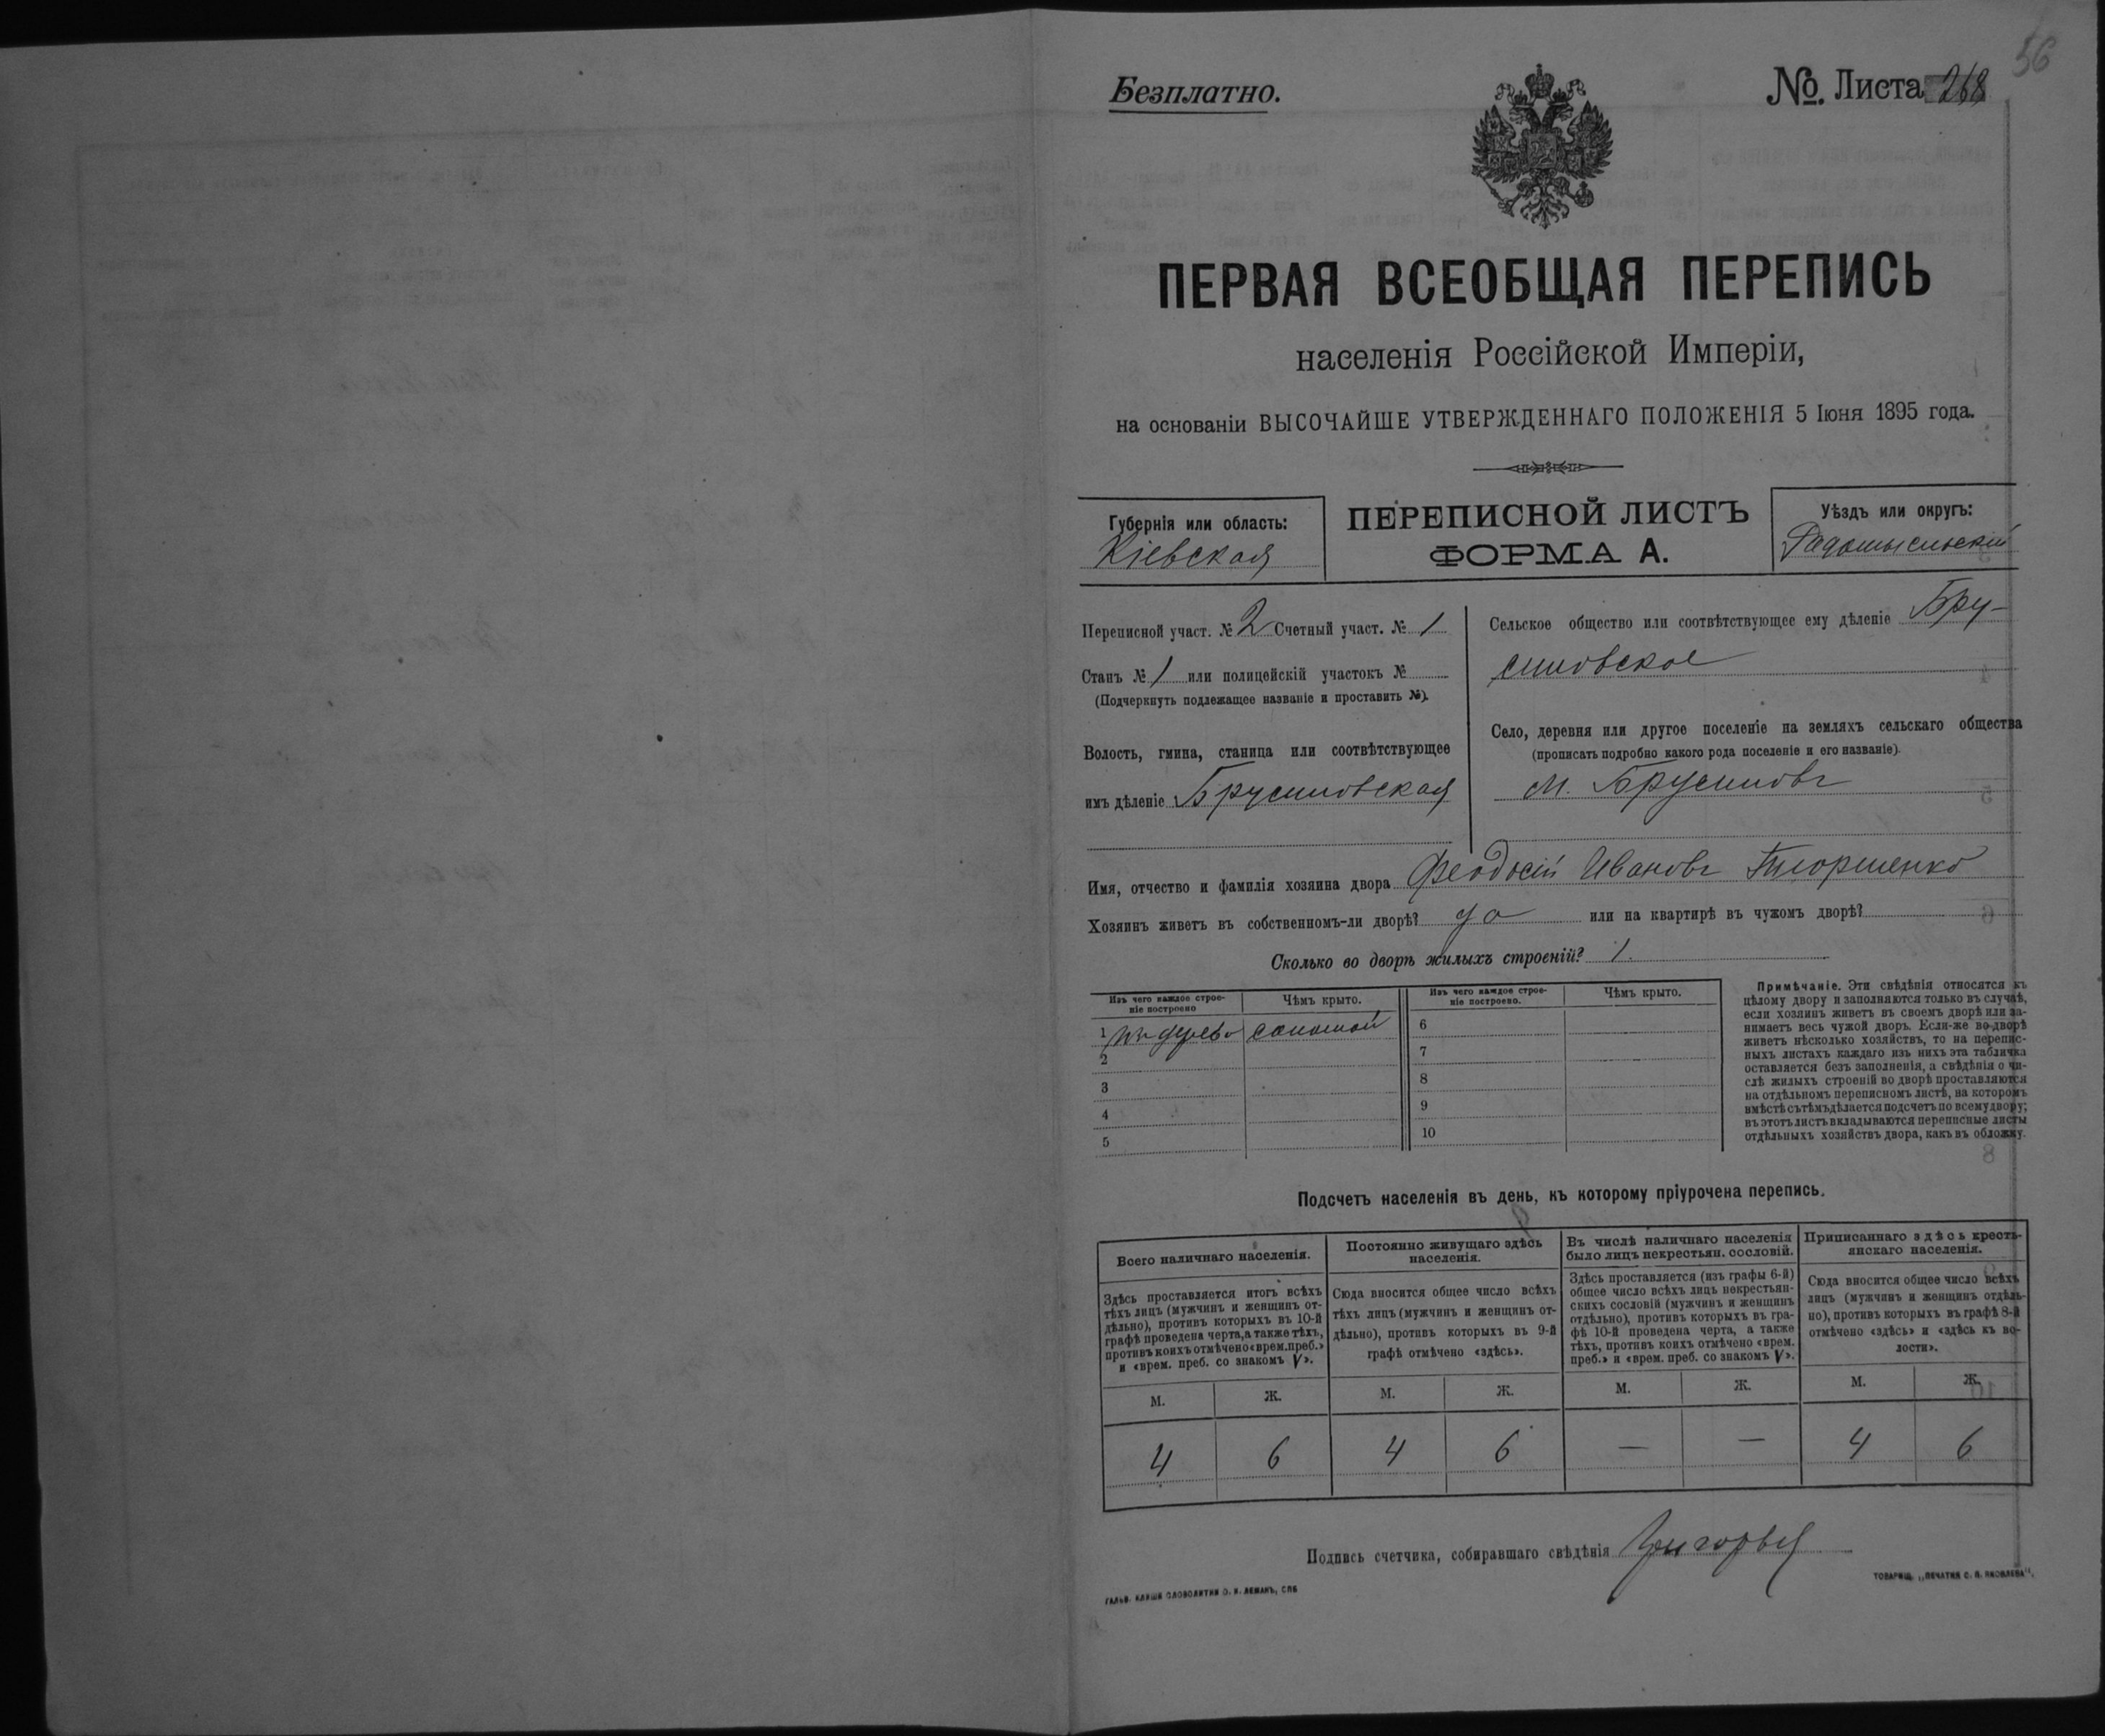 56
Безплатно.
№ Листа 268
ПЕРВАЯ ВСЕОБЩАЯ ПЕРЕПИСЬ
населенія Россійской Имперіи,
на основаніи ВЫСОЧАЙШЕ УТВЕРЖДЕННАГО ПОЛОЖЕНІЯ 5 Іюня 1895 года.
Губернія или область:
Кіевская
ПЕРЕПИСНОЙ ЛИСТЪ
ФОРМА А.
Уѣздъ или округъ:
Радомысльскій
Переписной участ. № 2 Счетный участ. № 1
Станъ № 1 или полицейскій участокъ №
(Подчеркнуть подлежащее названіе и проставить №).
Волость, гмина, станица или соотвѣтствующее
имъ дѣленіе Брусиловская
Сельское общество или соотвѣтствующее ему дѣленіе Бру-
силовское
Село, деревня или другое поселеніе на земляхъ сельскаго общества
(прописать подробно какого рода поселеніе и его названіе).
м. Брусиловъ
Имя, отчество и фамилія хозяина двора Феодосій Ивановъ
Хозяинъ живетъ въ собственномъ-ли дворѣ? да или на квартирѣ въ чужомъ дворѣ?
Сколько во дворѣ жилыхъ строеній? 1.
Изъ чего каждое строе-
ніе построено
Чѣмъ крыто.
1 изъ дерева соломой
2
3
4
5
Изъ чего каждое строе-
ніе построено.
Чѣмъ крыто.
6
7
8
9
10
Примѣчаніе. Эти свѣдѣнія относятся къ
цѣлому двору и заполняются только въ случаѣ,
если хозяинъ живетъ въ своемъ дворѣ или за-
нимаетъ весь чужой дворъ. Если-же во дворѣ
живетъ нѣсколько хозяйствъ, то на перепис-
ныхъ листахъ каждаго изъ нихъ эта табличка
оставляется безъ заполненія, а свѣдѣнія о чи-
слѣ жилыхъ строеній во дворѣ проставляются
на отдѣльномъ переписномъ листѣ, на которомъ
вмѣстѣ съ тѣмъ дѣлается подсчетъ по всему двору;
въ этотъ листъ вкладываются переписные листы
отдѣльныхъ хозяйствъ двора, какъ въ обложку.
Подсчетъ населенія въ день, къ которому пріурочена перепись.
Всего наличнаго населенія.
Здѣсь проставляется итогъ всѣхъ
тѣхъ лицъ (мужчинъ и женщинъ от-
дѣльно), противъ которыхъ въ 10-й
графѣ проведена черта, а также тѣхъ,
противъ коихъ отмѣчено «врем. преб.»
и «врем. преб. со знакомъ V».
М. Ж.
4 6
Постоянно живущаго здѣсь
населенія.
Сюда вносится общее число всѣхъ
тѣхъ лицъ (мужчинъ и женщинъ от-
дѣльно), противъ которыхъ въ 9-й
графѣ отмѣчено «здѣсь».
М. Ж.
4 6
Въ числѣ наличнаго населенія
было лицъ некрестьян. сословій.
Здѣсь проставляется (изъ графы 6-й)
общее число всѣхъ лицъ некрестьян-
скихъ сословій (мужчинъ и женщинъ
отдѣльно), противъ которыхъ въ гра-
фѣ 10-й проведена черта, а также
тѣхъ, противъ коихъ отмѣчено «врем.
преб.» и «врем. преб. со знакомъ V».
М. Ж.
— —
Приписаннаго здѣсь кресть-
янскаго населенія.
Сюда вносится общее число всѣхъ
лицъ (мужчинъ и женщинъ отдѣль-
но), противъ которыхъ въ графѣ 8-й
отмѣчено «здѣсь» и «здѣсь къ во-
лости».
М. Ж.
4 6
Подпись счетчика, собиравшаго свѣдѣнія
ГАЛЬВ. КЛИШЕ СЛОВОЛИТНИ О. И. ЛЕМАНЪ, СПБ
ТОВАРИЩ. „ПЕЧАТНЯ С. П. ЯКОВЛЕВА".